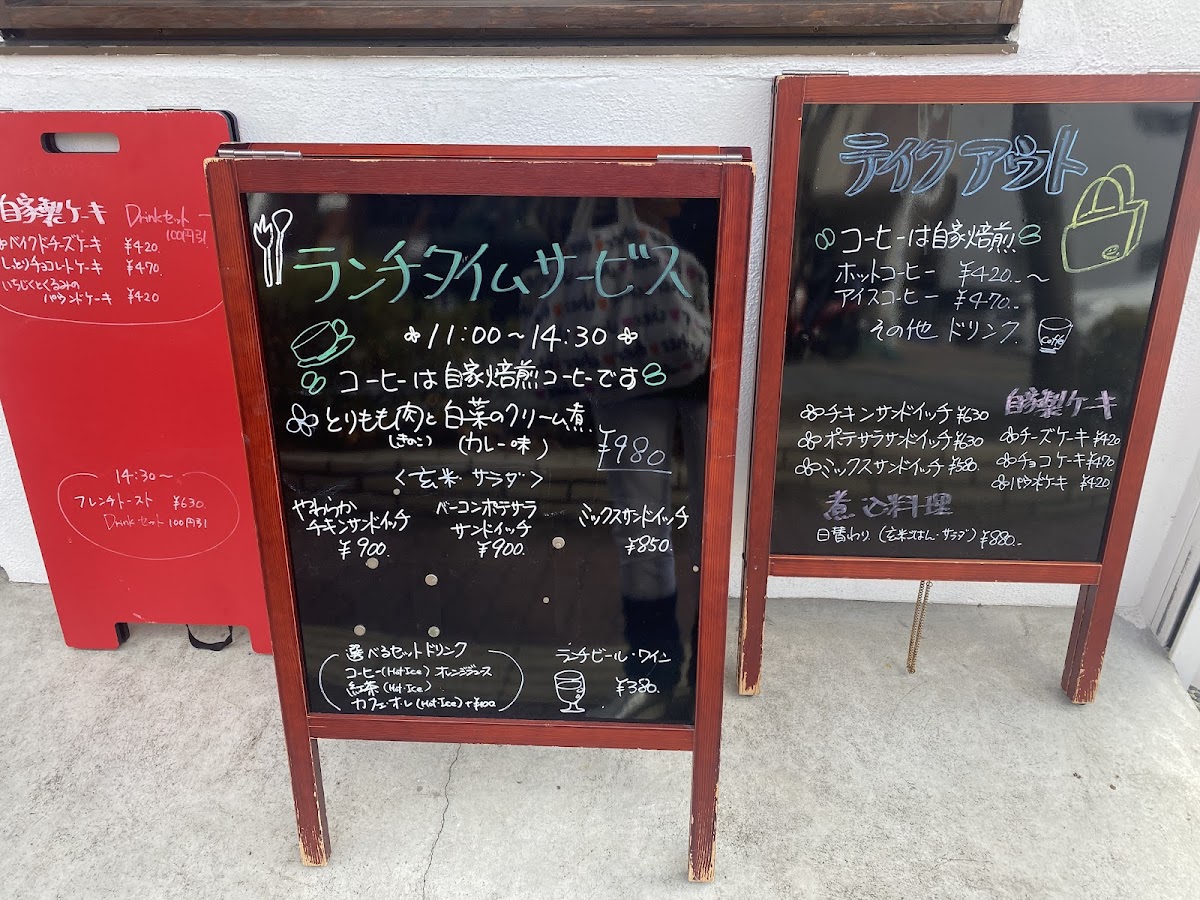 自家製ケーキ Drinkセット
100円引
ベイクドチーズケーキ ¥420.
しっとりチョコレートケーキ ¥470.
いちじくとくるみの
パウンドケーキ ¥420
14:30〜
フレンチトースト ¥630.
Drinkセット 100円引
ランチタイムサービス
11:00〜14:30
コーヒーは自家焙煎コーヒーです
とりもも肉と白菜のクリーム煮.
(きのこ) (カレー味) ¥980
<玄米・サラダ>
やわらか
チキンサンドイッチ
¥900.
ベーコンポテサラ
サンドイッチ
¥900.
ミックスサンドイッチ
¥850.
選べるセットドリンク
コーヒー(Hot・Ice) オレンジジュース
紅茶(Hot・Ice)
カフェ・オ・レ(Hot・Ice)+¥100
ランチビール・ワイン
¥380.
テイクアウト
コーヒーは自家焙煎
ホットコーヒー ¥420..〜
アイスコーヒー ¥470..
その他 ドリンク.
Coffe
チキンサンドイッチ ¥630
ポテサラサンドイッチ ¥630
ミックスサンドイッチ ¥580.
自家製ケーキ
チーズケーキ ¥420
チョコケーキ ¥470
パウンドケーキ ¥420.
煮込料理
日替わり(玄米ごはん・サラダ) ¥880..